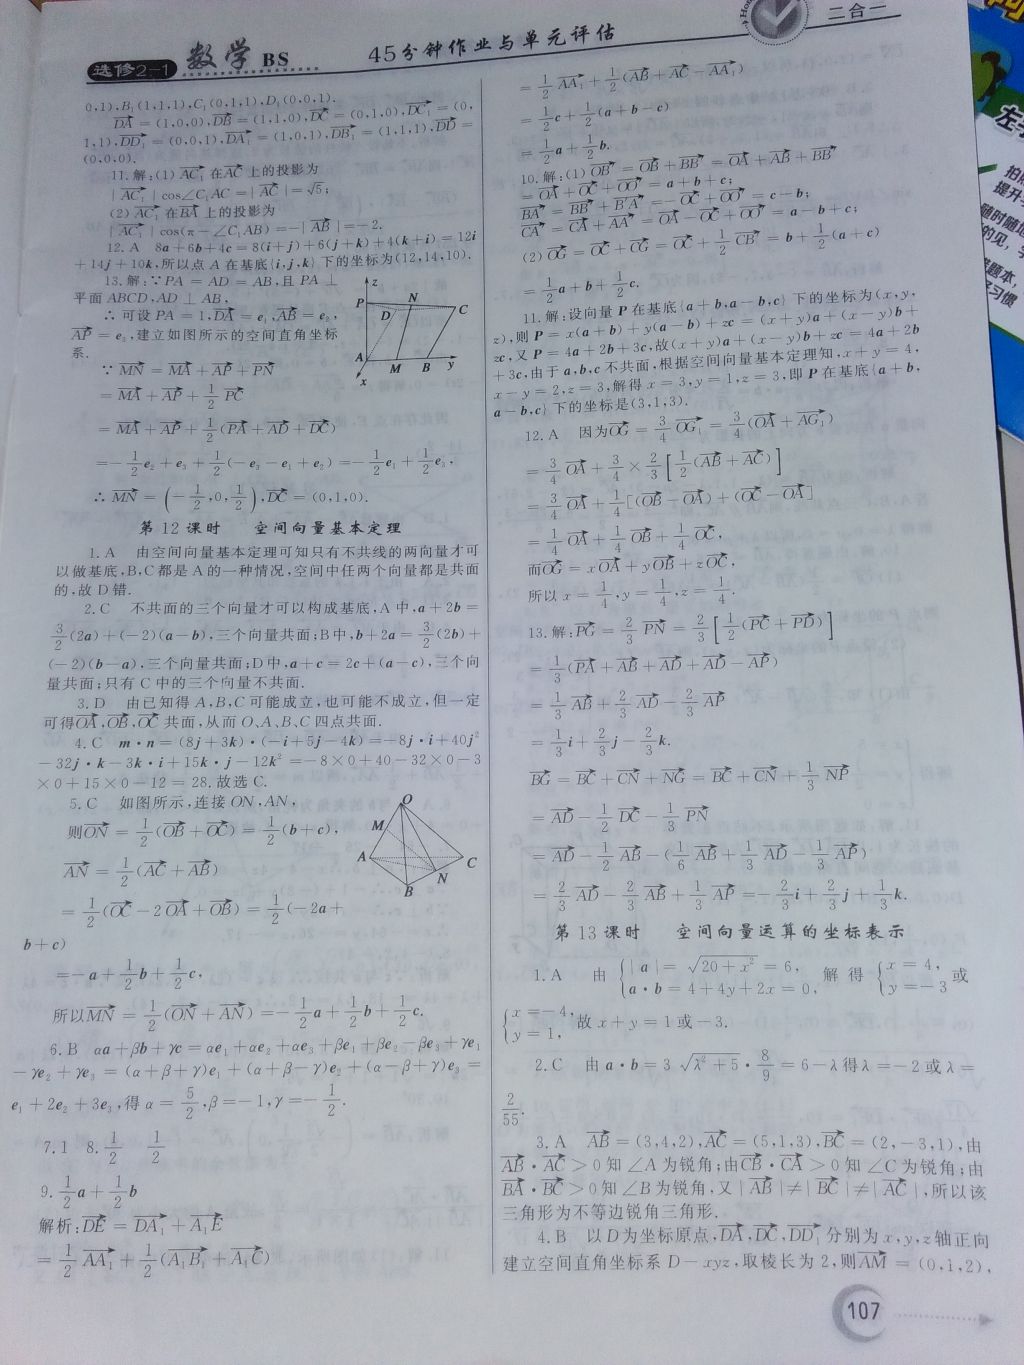 选修2-1 数学 BS 45分钟作业与单元评估
二合一
0,1),B₁(1,1,1),C₁(0,1,1),D₁(0,0,1).
DA→ = (1,0,0),DB→ = (1,1,0),DC→ = (0,1,0),DC₁→ = (0,
1,1),DD₁→ = (0,0,1),DA₁→ = (1,0,1),DB₁→ = (1,1,1),DD→ =
(0,0,0).
11.解:(1) AC₁→ 在AC→ 上的投影为
|AC₁→|cos∠C₁AC=|AC→|=√5;
(2) AC₁→ 在BA→ 上的投影为
|AC₁→|cos(π-∠C₁AB)=-|AB→|=-2.
12.A 8a+6b+4c=8(i+j)+6(j+k)+4(k+i)=12i
+14j+10k,所以点A在基底{i,j,k}下的坐标为(12,14,10).
13.解:∵PA=AD=AB,且PA⊥
平面ABCD,AD⊥AB,
∴可设PA=1,DA→=e₁,AB→=e₂,
AP→=e₃,建立如图所示的空间直角坐标
系.
z
P N
D C
A M B y
x
∵MN→=MA→+AP→+PN→
=MA→+AP→+1/2 PC→
=MA→+AP→+1/2(PA→+AD→+DC→)
=-1/2e₂+e₃+1/2(-e₃-e₁+e₂)=-1/2e₁+1/2e₃,
∴MN→=(-1/2,0,1/2),DC→=(0,1,0).
第12课时 空间向量基本定理
1.A 由空间向量基本定理可知只有不共线的两向量才可
以做基底,B,C都是A的一种情况,空间中任两个向量都是共面
的,故D错.
2.C 不共面的三个向量才可以构成基底,A中,a+2b=
3/2(2a)+(-2)(a-b),三个向量共面;B中,b+2a=3/2(2b)+
(-2)(b-a),三个向量共面;D中,a+c=2c+(a-c),三个向
量共面;只有C中的三个向量不共面.
3.D 由已知得A,B,C可能成立,也可能不成立,但一定
可得OA→,OB→,OC→共面,从而O、A、B、C四点共面.
4.C m·n=(8j+3k)·(-i+5j-4k)=-8j·i+40j²
-32j·k-3k·i+15k·j-12k²=-8×0+40-32×0-3
×0+15×0-12=28.故选C.
5.C 如图所示,连接ON,AN,
则ON→=1/2(OB→+OC→)=1/2(b+c),
AN→=1/2(AC→+AB→)
=1/2(OC→-2OA→+OB→)=1/2(-2a+
b+c)
O
M
A C
N
B
=-a+1/2b+1/2c,
所以MN→=1/2(ON→+AN→)=-1/2a+1/2b+1/2c.
6.B αa+βb+γc=αe₁+αe₂+αe₃+βe₁+βe₂-βe₃+γe₁
-γe₂+γe₃=(α+β+γ)e₁+(α+β-γ)e₂+(α-β+γ)e₃=
e₁+2e₂+3e₃,得α=5/2,β=-1,γ=-1/2.
7.1 8.1/2 1/2
9.1/2a+1/2b
解析:DE→=DA₁→+A₁E→
=1/2 AA₁→+1/2(A₁B₁→+A₁C→)
=1/2 AA₁→+1/2(AB→+AC→-AA₁→)
=1/2c+1/2(a+b-c)
=1/2a+1/2b.
10.解:(1) OB′→=OB→+BB′→=OA→+AB→+BB′→
=OA→+OC→+OO′→=a+b+c;
BA′→=BB′→+B′A′→=-OC→+OO′→=c-b;
CA′→=CA→+AA′→=OA→-OC→+OO′→=a-b+c;
(2)OG→=OC→+CG→=OC→+1/2 CB′→=b+1/2(a+c)
=1/2a+b+1/2c.
11.解:设向量P在基底{a+b,a-b,c}下的坐标为(x,y,
z),则P=x(a+b)+y(a-b)+zc=(x+y)a+(x-y)b+
zc,又P=4a+2b+3c,故(x+y)a+(x-y)b+zc=4a+2b
+3c,由于a,b,c不共面,根据空间向量基本定理知,x+y=4,
x-y=2,z=3,解得x=3,y=1,z=3,即P在基底{a+b,
a-b,c}下的坐标是(3,1,3).
12.A 因为OG→=3/4 OG₁→=3/4(OA→+AG₁→)
=3/4 OA→+3/4×2/3[1/2(AB→+AC→)]
=3/4 OA→+1/4[(OB→-OA→)+(OC→-OA→]
=1/4 OA→+1/4 OB→+1/4 OC→,
而OG→=xOA→+yOB→+zOC→,
所以x=1/4,y=1/4,z=1/4.
13.解:PG→=2/3 PN→=2/3[1/2(PC→+PD→)]
=1/3(PA→+AB→+AD→+AD→-AP→)
=1/3 AB→+2/3 AD→-2/3 AP→
=1/3i+2/3j-2/3k.
BG→=BC→+CN→+NG→=BC→+CN→+1/3 NP→
=AD→-1/2 DC→-1/3 PN→
=AD→-1/2 AB→-(1/6 AB→+1/3 AD→-1/3 AP→)
=2/3 AD→-2/3 AB→+1/3 AP→=-2/3i+2/3j+1/3k.
第13课时 空间向量运算的坐标表示
1.A 由{|a|=√(20+x²)=6, a·b=4+4y+2x=0, 解得{x=4, y=-3或
{x=-4, y=1, 故x+y=1或-3.
2.C 由a·b=3√(λ²+5)·8/9=6-λ得λ=-2或λ=
2/55.
3.A AB→=(3,4,2),AC→=(5,1,3),BC→=(2,-3,1),由
AB→·AC→>0知∠A为锐角;由CB→·CA→>0知∠C为锐角;由
BA→·BC→>0知∠B为锐角,又|AB→|≠|BC→|≠|AC→|,所以该
三角形为不等边锐角三角形.
4.B 以D为坐标原点,DA→,DC→,DD₁→分别为x,y,z轴正向
建立空间直角坐标系D-xyz,取棱长为2,则AM→=(0,1,2),
107